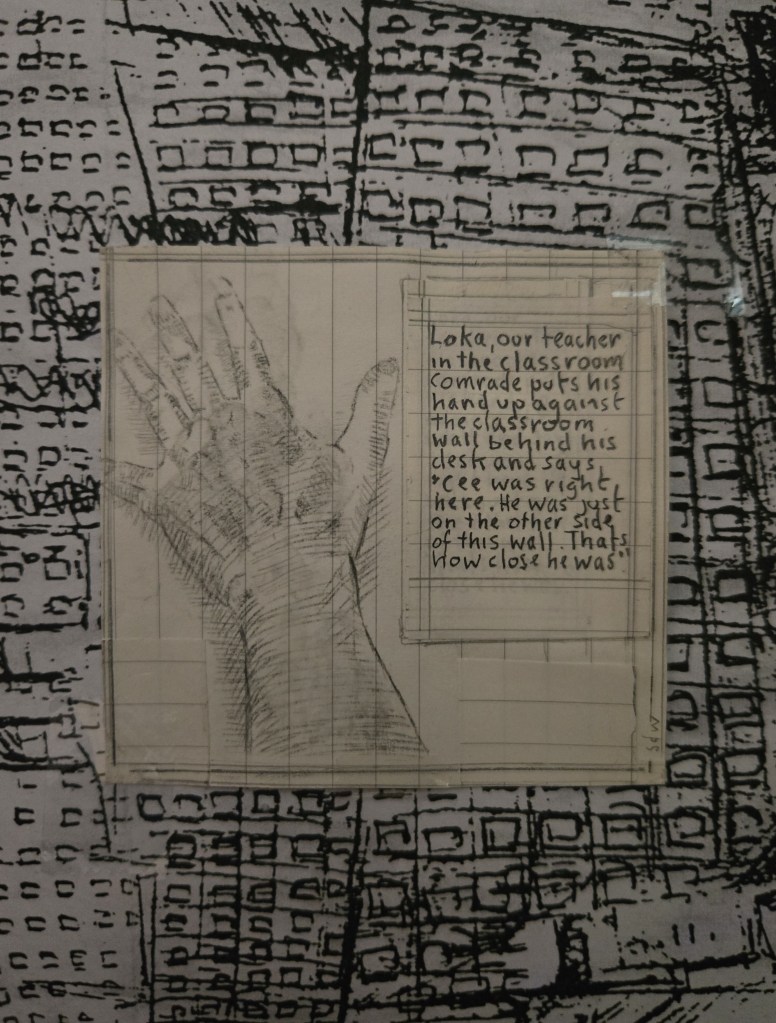 Loka, our teacher
in the classroom
comrade puts his
hand up against
the classroom
wall behind his
desk and says,
"Cee was right
here. He was just
on the other side
of this wall. Thats
how close he was"